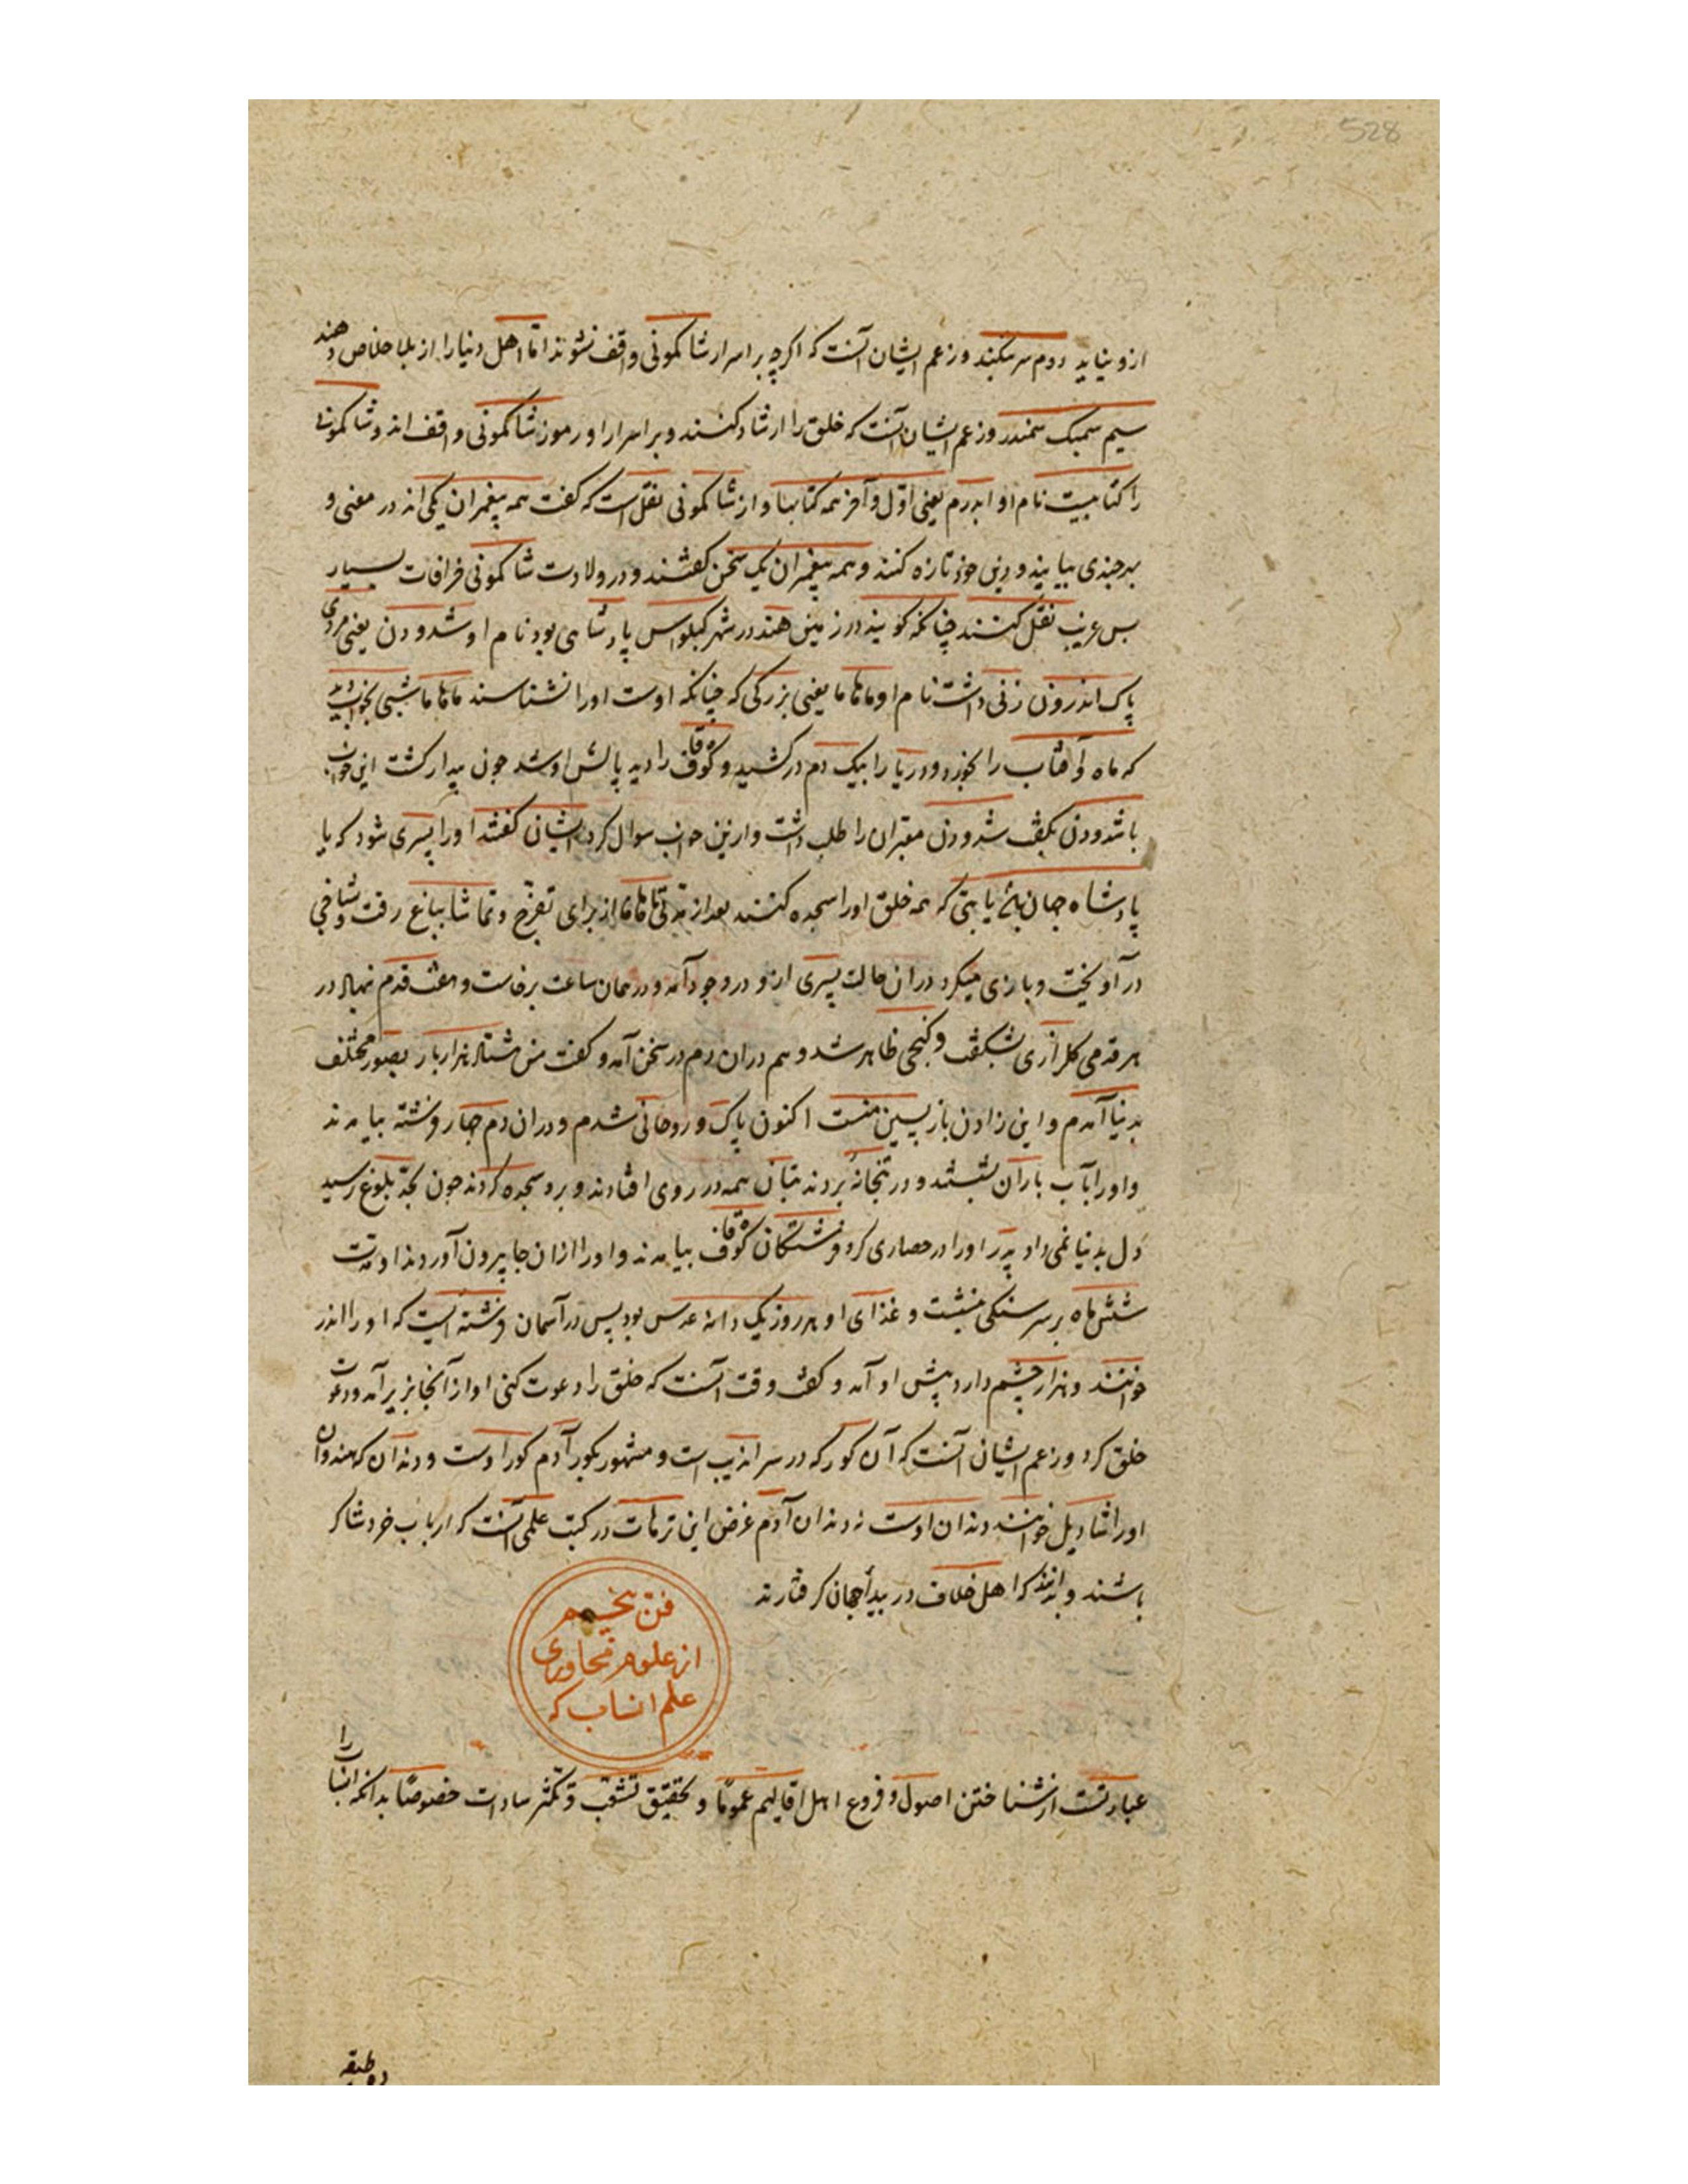 528
ازو نیاید دوم سرسکبند و زعم ایشان آنست که اگرچه بر اسرار شاکمونی واقف نشوند اما اهل دنیا را از بلا خلاص دهند
سیم سمبک سمندر و زعم ایشان آنست که خلق را ارشاد کنند و بر اسرار و رموز شاکمونی واقف اند و شاکمونی
را کتابیست نام او ابدرم یعنی اول و آخر همه کتابها و از شاکمونی نقل است که گفت همه پیغمبران یکی اند در معنی و
بر چندی بیایند و دین خود تازه کنند و همه پیغمبران یک سخن گفتند و در ولادت شاکمونی خرافات بسیار
بس غریب نقل کنند چنانکه گویند در زمین هند در شهر کبلواس پادشاهی بود نام او شدودن یعنی مردی
پاک اندرون زنی داشت نام او ماهاما یعنی بزرگی که چنانکه اوست او را نشناسند ماهاما شبی بخواب دید
که ماه و آفتاب را بخورد و دریا را بیک دم در کشید و کوه قاف را دید بالش او شد جون بیدار کشت این خواب
با شدودن بکفت شدودن معبران را طلب داشت و از این خواب سوال کرد ایشان کفتند او را پسری شود که یا
پادشاه جهان باشد یا بتی که همه خلق او را سجده کنند بعد از مدتی ماهاما از برای تفرج و تماشا بباغ رفت و شاخی
در آویخت و بازی میکرد در ان حالت پسری ازو در وجود آمد و در همان ساعت برخاست و هفت قدم نهاد در
هر قدمی کلزاری شکفت و کنجی ظاهر شد و هم در ان دم در سخن آمد و کفت من هشتاد هزار بار بصور مختلف
بدنیا آمدم و این زادن بازپسین منست اکنون پاک و روحانی شدم و در ان دم چهار فرشته بیامدند
و او را بآب باران بشستند و در بتخانه بردند بتان همه در روی افتادند و برو سجده کردند جون بحد بلوغ رسید
دل بدنیا نمی داد پدر او را در حصاری کرد فرشتکان کوه قاف بیامدند و او را از ان جا بیرون آوردند او مدت
شش ماه بر سر سنکی بنشست و غذای او هر روز یک دانه عدس بود پس در آسمان فرشته ایست که او را اندر
خوانند و هزار چشم دارد پیش او آمد و کفت وقت آنست که خلق را دعوت کنی او از آنجا بزیر آمد و دعوت
خلق کرد و زعم ایشان آنست که آن کور که در سراندیب است و مشهور بکور آدم کور اوست و دندان که هندوان
او را شادیل خوانند دندان اوست نه دندان آدم غرض این ترهات در کتب علمی آنست که ارباب خرد شاکر
باشند و بدانند که اهل خلاف در بیدا جهان گرفتارند
فن پنجم
از علوم محاوری
علم انساب که
عبارتست از شناختن اصول و فروع اهل اقالیم عموما و تحقیق تشعب و تکثر سادات خصوصا بدانکه انساب را
دو طبقه